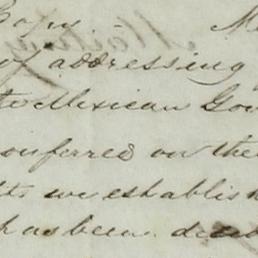 Copy -
of addressing
the Mexican Gov
conferred on the
its we establish
has been